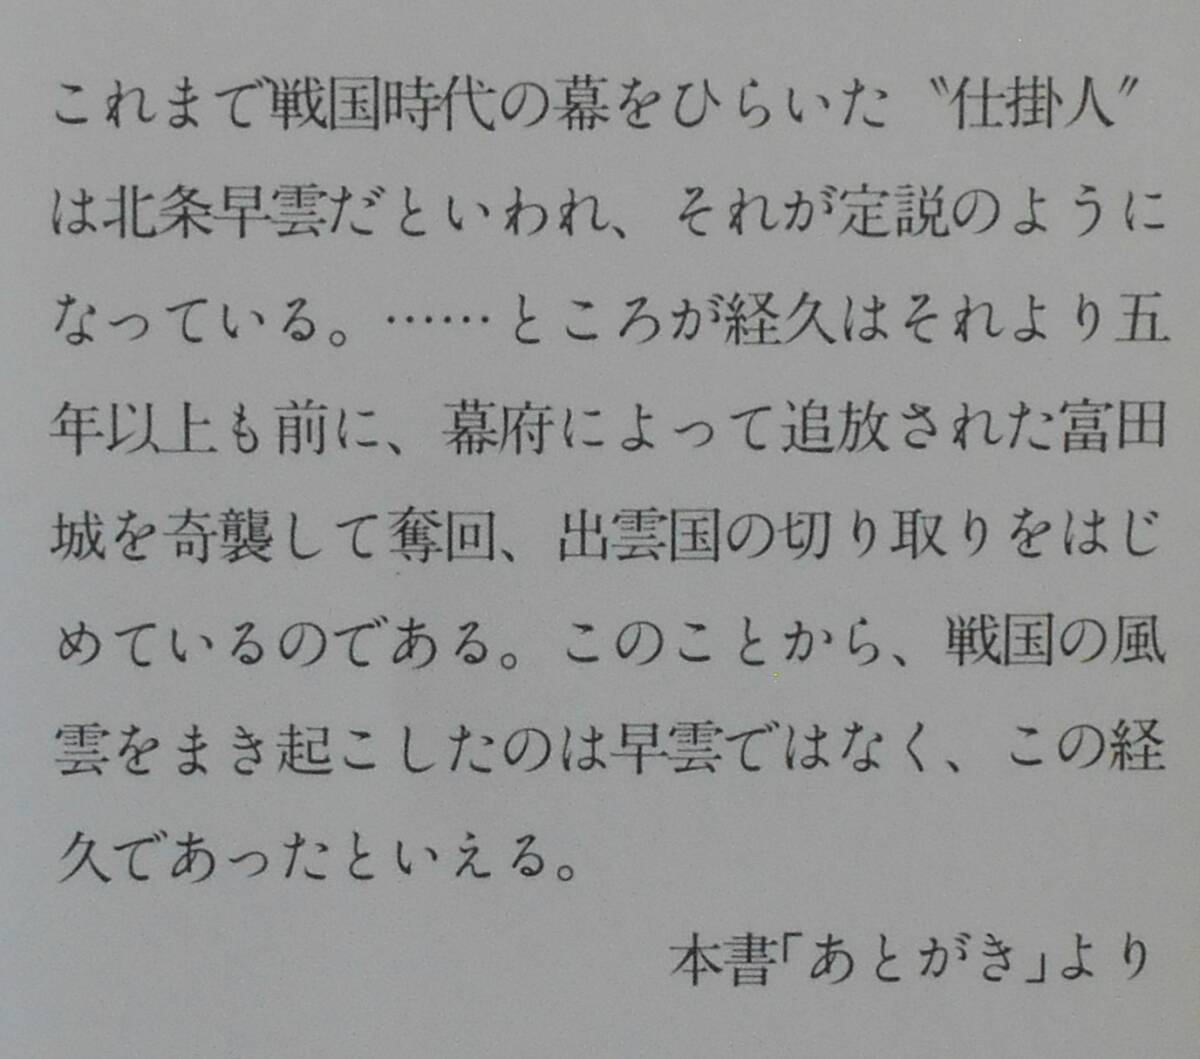 これまで戦国時代の幕をひらいた〝仕掛人〟
は北条早雲だといわれ、それが定説のように
なっている。……ところが経久はそれより五
年以上も前に、幕府によって追放された富田
城を奇襲して奪回、出雲国の切り取りをはじ
めているのである。このことから、戦国の風
雲をまき起こしたのは早雲ではなく、この経
久であったといえる。
本書「あとがき」より